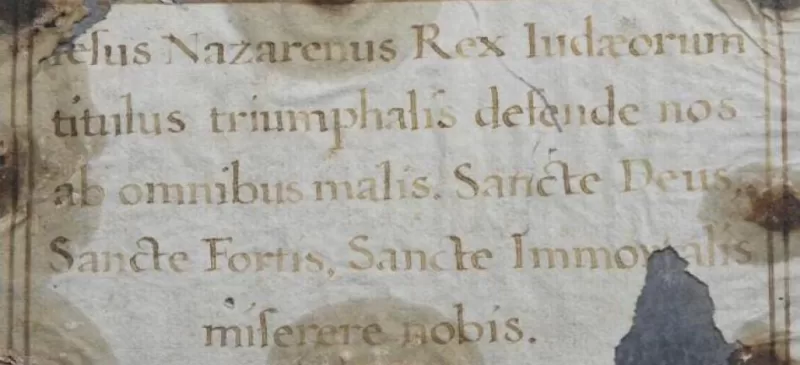 Iesus Nazarenus Rex Iudæorum
titulus triumphalis defende nos
ab omnibus malis. Sancte Deus,
Sancte Fortis, Sancte Immortalis
miſerere nobis.